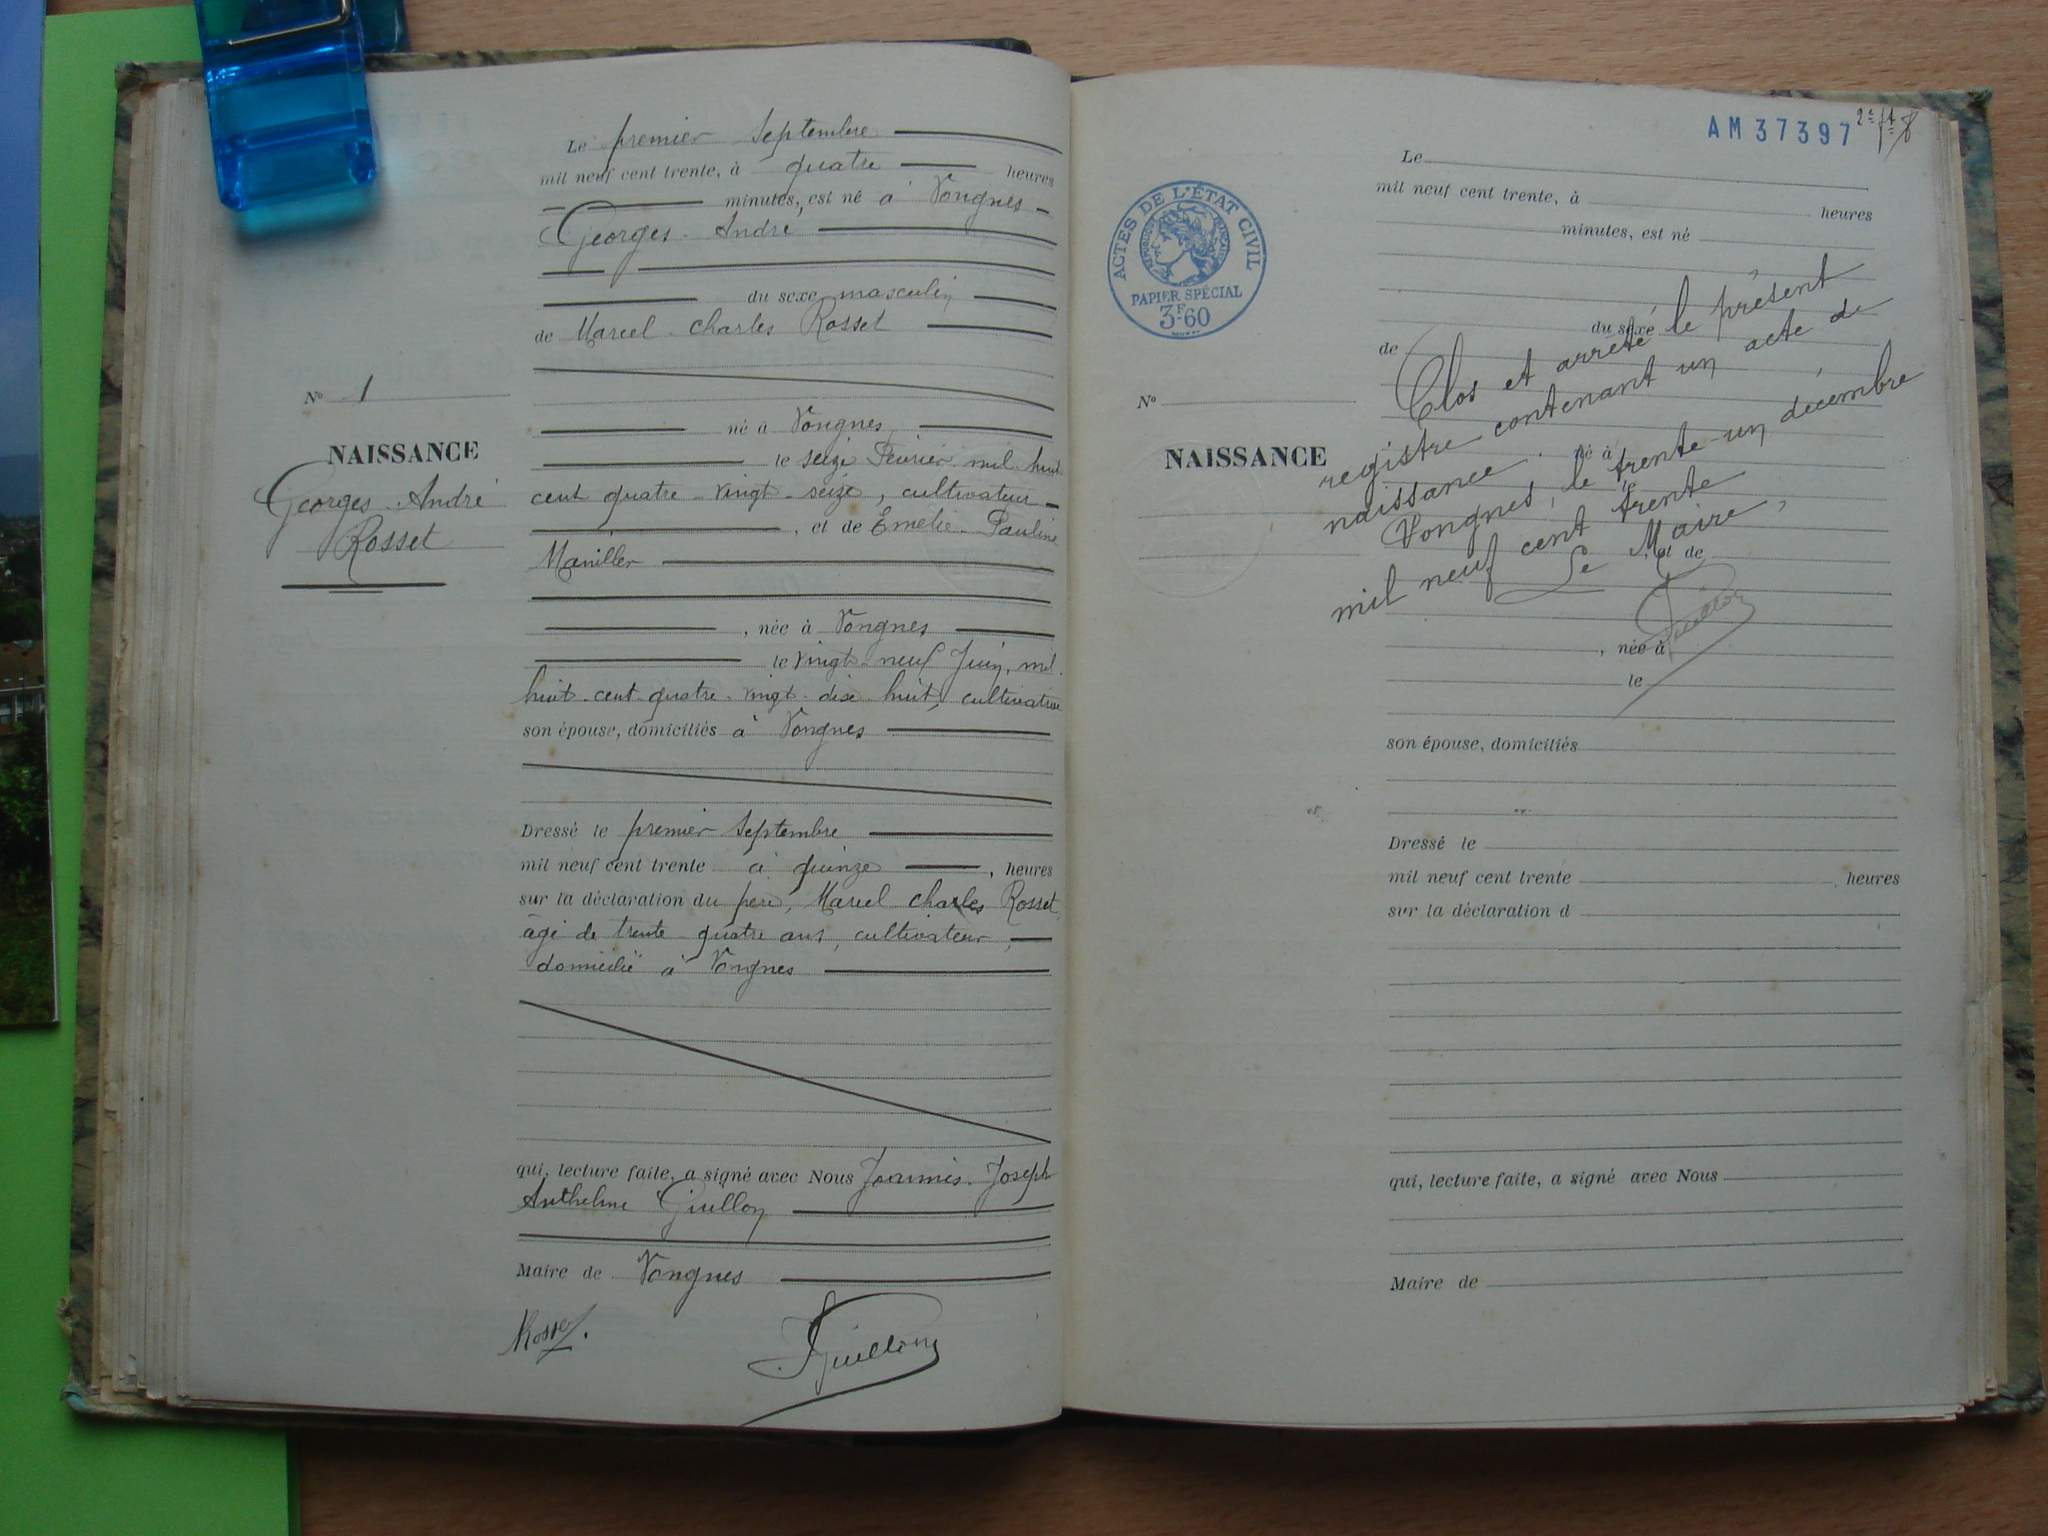 Le premier Septembre
mil neuf cent trente, à quatre heures
minutes, est né à Vongnes
Georges André
du sexe masculin
de Marcel Charles Rosset
né à Vongnes,
le seize Février mil huit
cent quatre-vingt-seize, cultivateur
, et de Emelie Pauline
Maniller
, née à Vongnes
le vingt-neuf Juin, mil
huit-cent-quatre-vingt-dix huit, cultivatrice
son épouse, domiciliés à Vongnes
Dressé le premier Septembre
mil neuf cent trente à quinze, heures
sur la déclaration du père, Marcel Charles Rosset,
âgé de trente-quatre ans, cultivateur,
domicilié à Vongnes
qui, lecture faite, a signé avec Nous Joannès Joseph
Anthelme Guillon
Maire de Vongnes
Rosset
JGuillon
No 1
NAISSANCE
Georges André
Rosset
AM 37397
ACTES DE L'ÉTAT CIVIL
RÉPUBLIQUE FRANÇAISE
PAPIER SPÉCIAL
3F.60
No
NAISSANCE
Le
mil neuf cent trente, à heures
minutes, est né
du sexe
de
né à
le
, et de
, née à
le
son épouse, domiciliés
Dressé le
mil neuf cent trente, heures
sur la déclaration d
qui, lecture faite, a signé avec Nous
Maire de
Clos et arrêté le présent
registre contenant un acte de
naissance.
Vongnes, le trente-un décembre
mil neuf cent trente
Le Maire,
Guillon